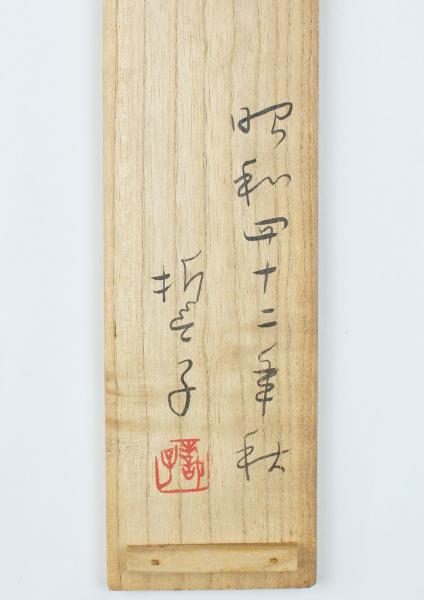 昭和四十二年秋
誓子